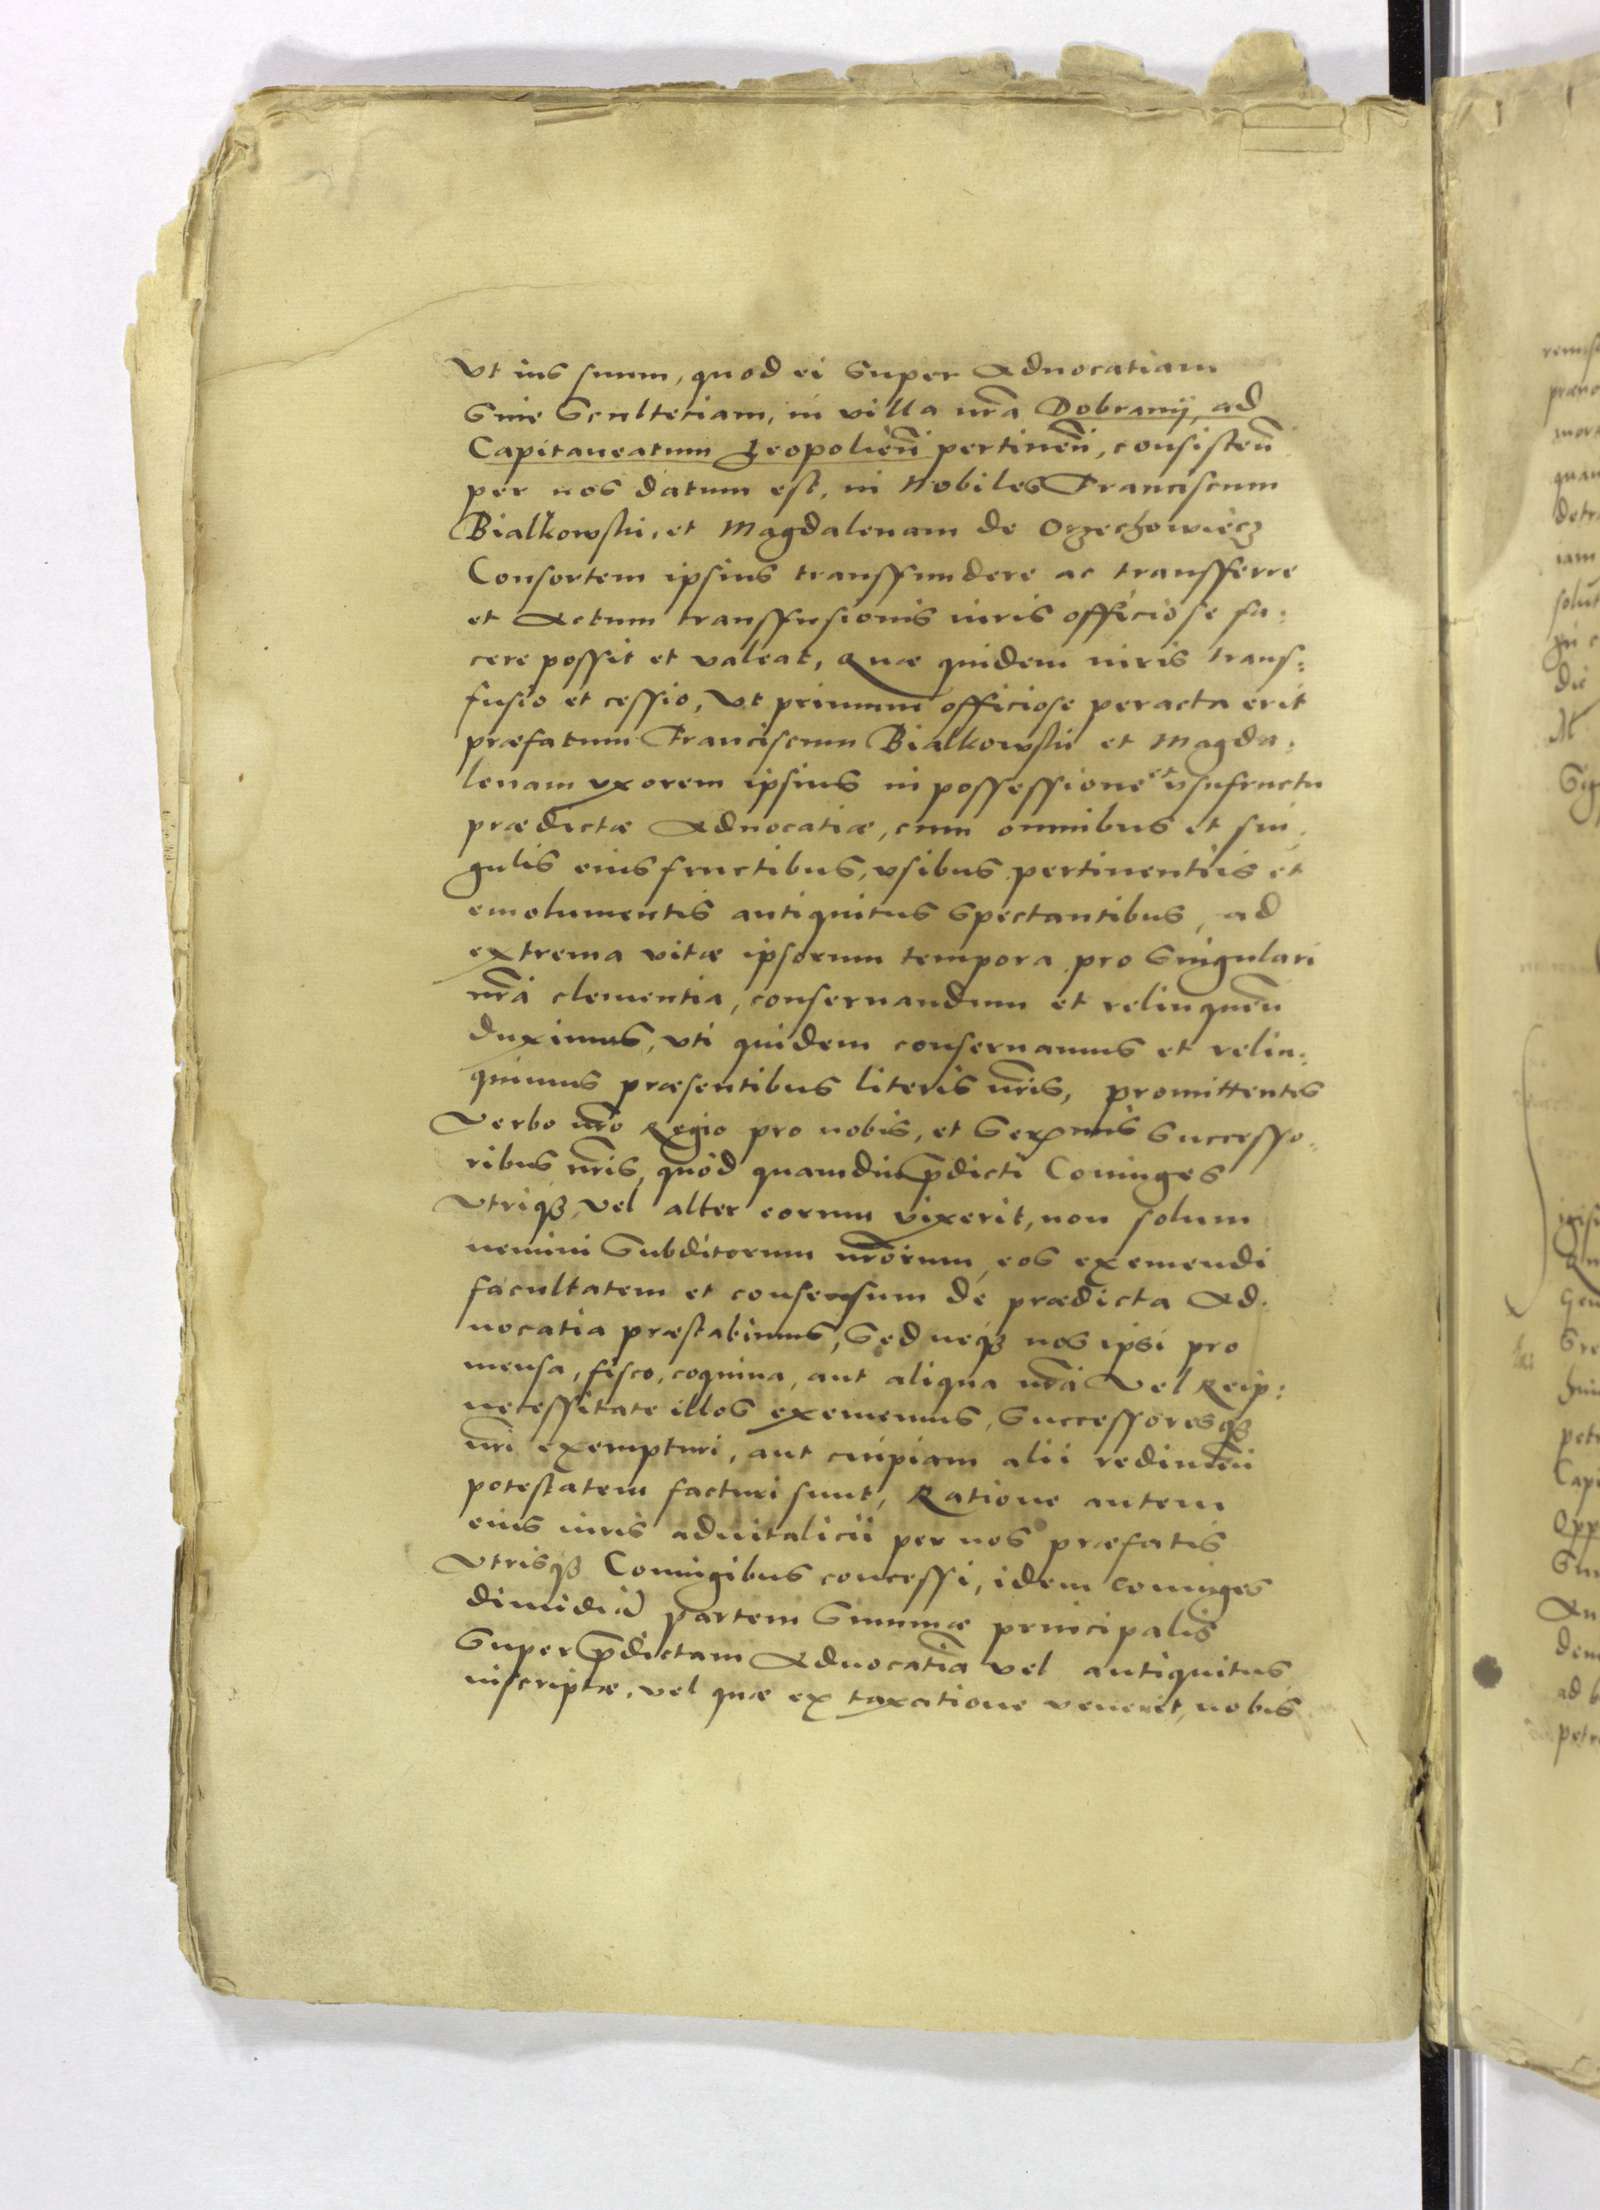 Vt ius suum, quod ei super Aduocatiam
siue Scultetiam, in villa nr̃a Dobranÿ, ad
Capitaneatum Leopolien̄ pertinen̄, consisten̄
per nos datum est, in Nobiles Franciscum
Bialkowski, et Magdalenam de Orzechowiecz
Consortem ipsius transffundere ac transfferre
et Actum transffusionis iuris officiose fa:
cere possit et valeat, Quæ quidem iuris trans:
fusio et cessio, Vt primum officiose peracta erit
præfatum Franciscum Bialkowski et Magda:
lenam vxorem ipsius in possessione et vsufructu
prædictæ Aduocatiæ, cum omnibus et sin,
gulis eius fructibus, vsibus pertinentiis et
emolumentis antiquitus spectantibus, ad
extrema vitæ ipsorum tempora pro singulari
nr̃a clementia, conseruandum et relinquen̄
duximus, vti quidem conseruamus et relin:
quimus præsentibus literis nr̃is, promittentes
Verbo nr̃o Regio pro nobis, et Ser̃mis Successo,
ribus nr̃is, quod quamdiu p̃dicti Coniuges
Vtriqȝ, vel alter eorum vixerit, non solum
nemini Subditorum nr̃orum, eos exemendi
facultatem et consensum de prædicta Ad:
uocatia præstabimus, Sed neqȝ nos ipsi pro
mensa, fisco, coquina, aut aliqua nr̃a Vel Reip:
necessitate illos exememus, Successoresqȝ
nr̃i exempturi, aut cuipiam alii redimen̄
potestatem facturi sunt, Ratione autem
eius iuris aduitalicii per nos præfatis
Vtrisqȝ Coniugibus concessi, idem Coniuges
dimidiā partem Summæ principalis
Super p̃dictam Aduocatiā vel antiquitus
inscriptæ, vel quæ ex taxatione venerit, nobis